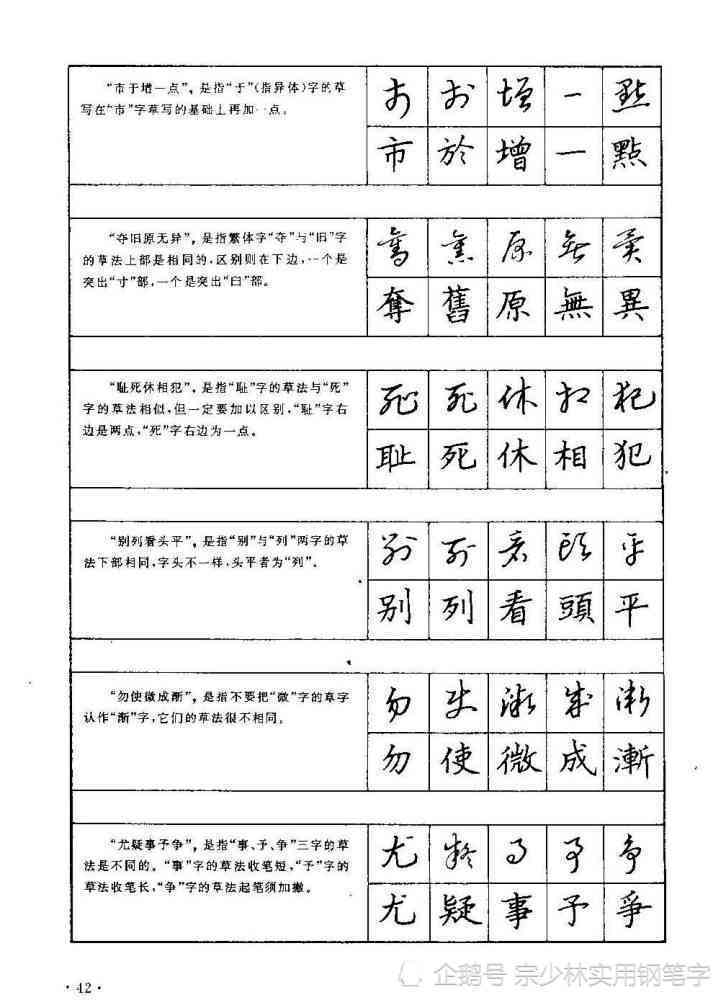 “市于增一点”，是指“于”(指异体)字的草
写在“市”字草写的基础上再加一点。
市於增一點
市於增一點
“夺旧原无异”，是指繁体字“夺”与“旧”字
的草法上部是相同的，区别则在下边，一个是
突出“寸”部，一个是突出“臼”部。
奪舊原無異
奪舊原無異
“耻死休相犯”，是指“耻”字的草法与“死”
字的草法相似，但一定要加以区别，“耻”字右
边是两点，“死”字右边为一点。
耻死休相犯
耻死休相犯
“别列看头平”，是指“别”与“列”两字的草
法下部相同，字头不一样，头平者为“列”。
别列看頭平
别列看頭平
“勿使微成渐”，是指不要把“微”字的草字
认作“渐”字，它们的草法很不相同。
勿使微成漸
勿使微成漸
“尤疑事予争”，是指“事、予、争”三字的草
法是不同的。“事”字的草法收笔短，“予”字的
草法收笔长，“争”字的草法起笔须加撇。
尤疑事予爭
尤疑事予爭
·42·
企鹅号 宗少林实用钢笔字